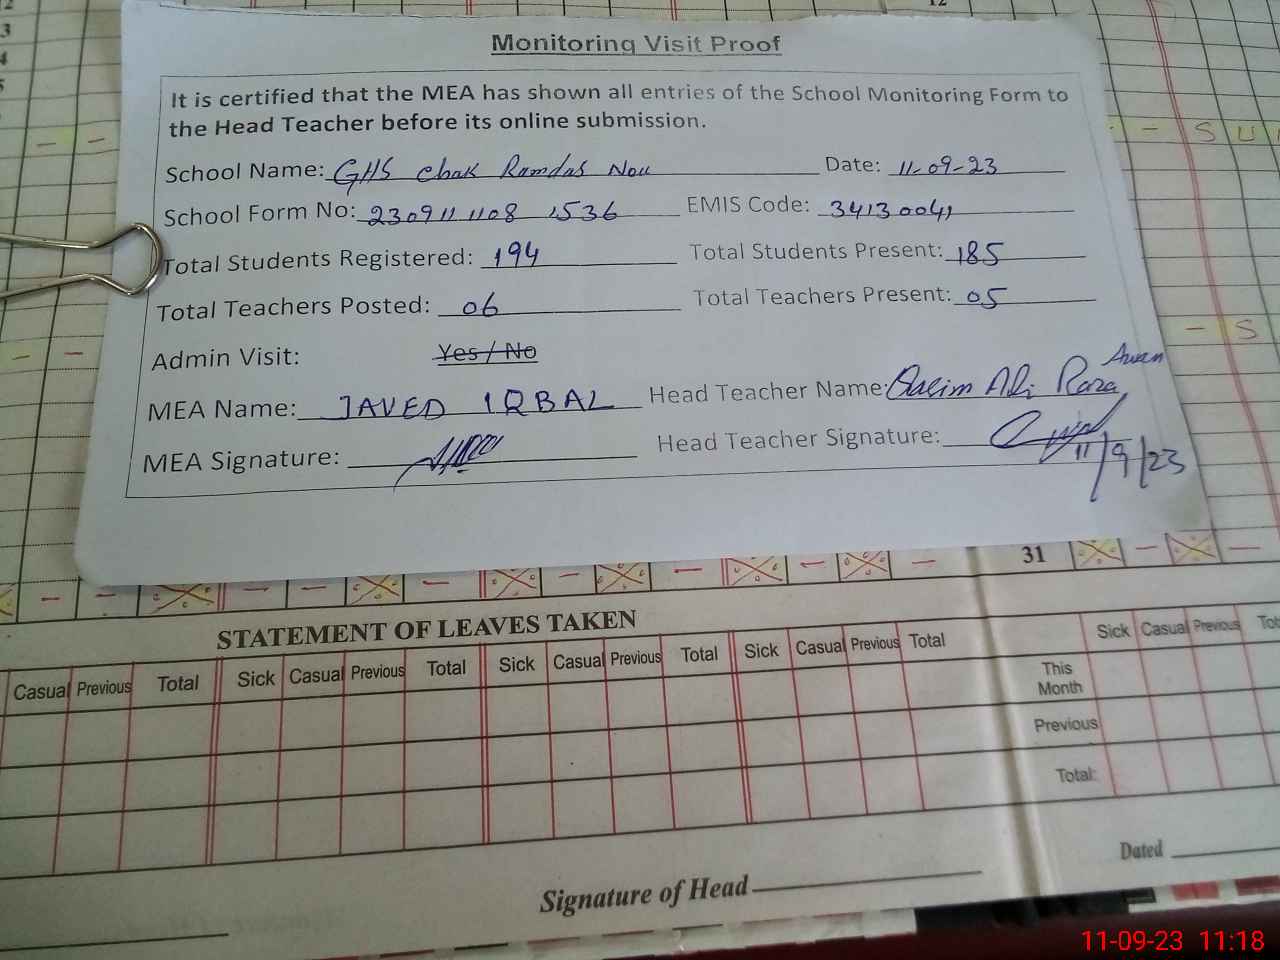 12
3
4
5
Monitoring Visit Proof
It is certified that the MEA has shown all entries of the School Monitoring Form to
the Head Teacher before its online submission.
S U
School Name: GHS Chak Ramdas Nou Date: 11-09-23
School Form No: 230911 1108 1536 EMIS Code: 34130041
Total Students Registered: 194 Total Students Present: 185
Total Teachers Posted: 06 Total Teachers Present: 05
S
Admin Visit: Yes / No
MEA Name: JAVED IQBAL Head Teacher Name: Qasim Ali Raza Awan
MEA Signature: Head Teacher Signature:
11/9/23
31
STATEMENT OF LEAVES TAKEN
Casual Previous Total Sick Casual Previous Total Sick Casual Previous Total Sick Casual Previous Total Sick Casual Previous
This
Month
Previous
Total:
Signature of Head
Dated
11-09-23 11:18